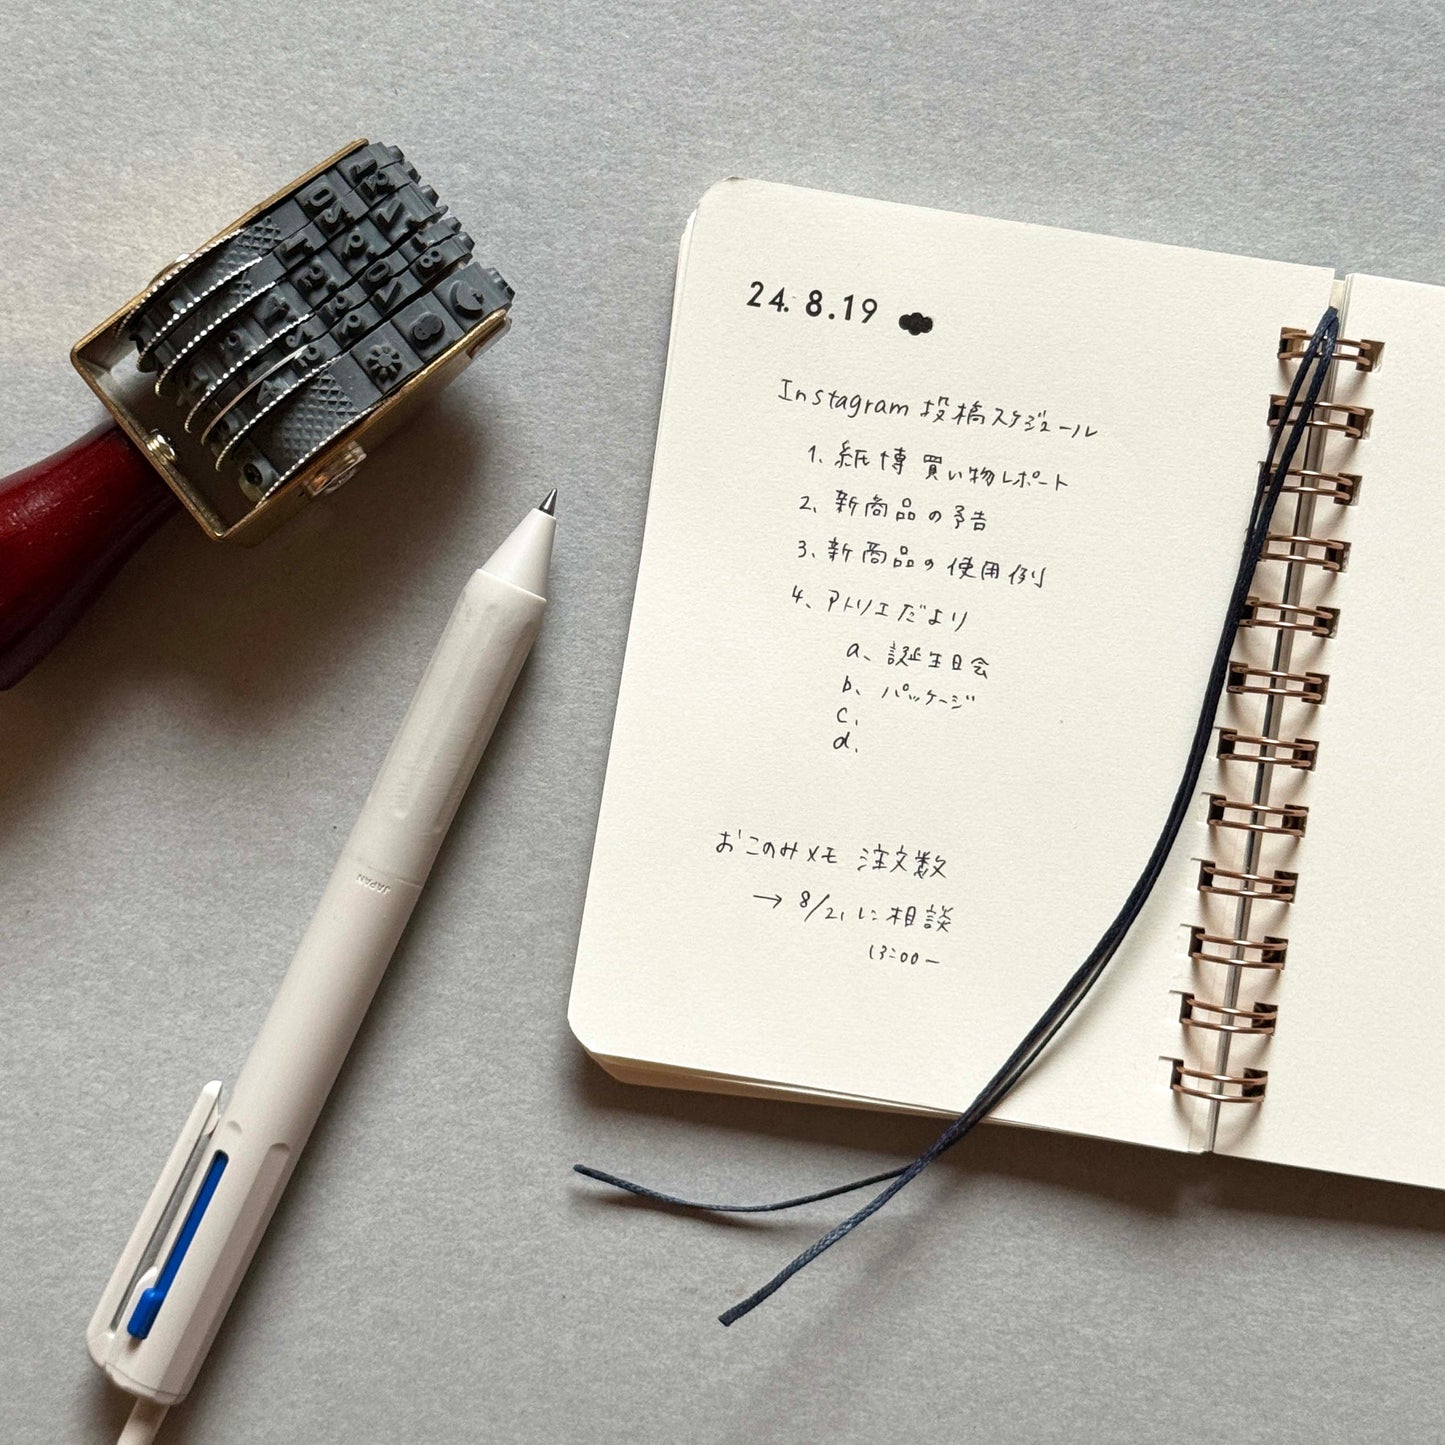 24.8.19
Instagram 投稿スケジュール
1、紙博 買い物レポート
2、新商品の予告
3、新商品の使用例
4、アトリエだより
a、誕生日会
b、パッケージ
c、
d、
おこのみメモ 注文数
→ 8/21に相談
13:00ー
JAPAN